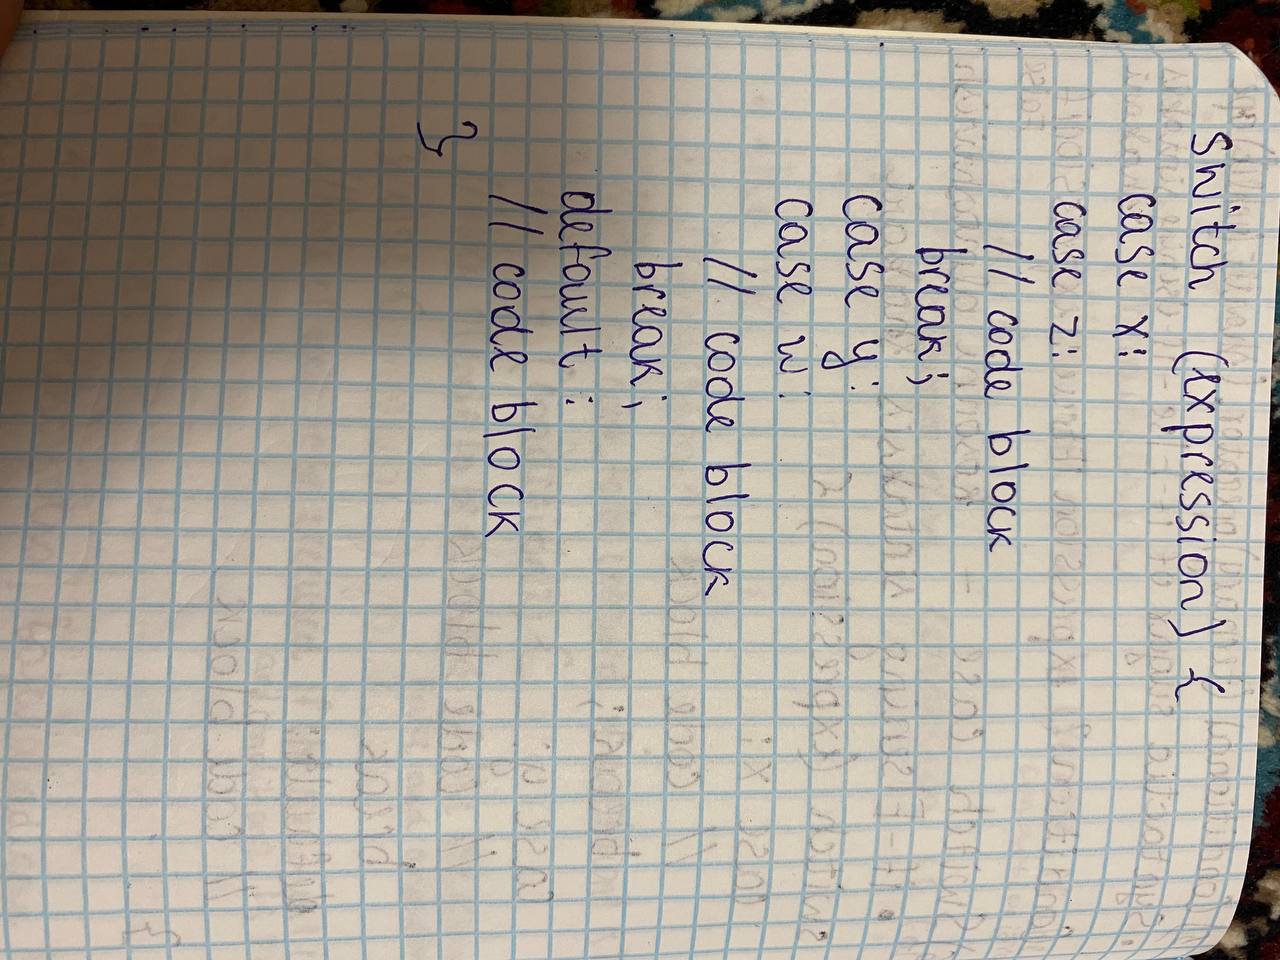 Switch (expression) {
case x:
case z:
// code block
break;
case y:
case w:
// code block
break;
default:
// code block
}